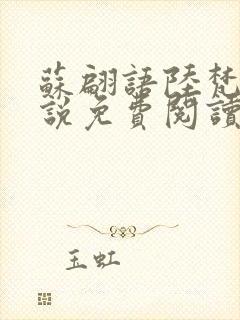 蘇翩語陸梵
說免費閱讀
玉虹